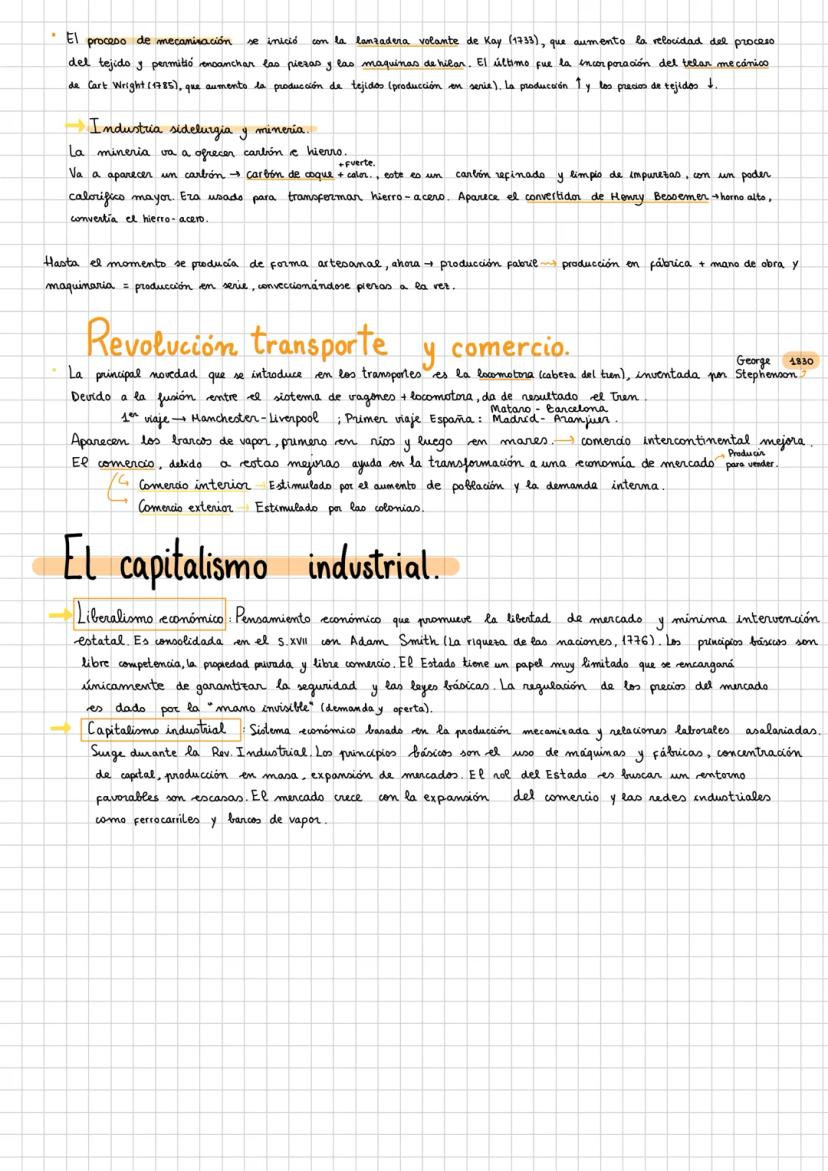 • El proceso de mecanización se inició con la lanzadera volante de Kay (1733), que aumento la velocidad del proceso
del tejido y permitió ensanchar las piezas y las maquinas de hilar. El último fue la incorporación del telar mecánico
de Cart Wright (1785), que aumento la producción de tejidos (producción en serie). La producción ↑ y los precios de tejidos ↓.
→ Industria sidelurgia y minería.
La mineria va a ofrecer carbón e hierro.
+ fuerte.
Va a aparecer un carbón → carbón de coque + calor., este es un carbón refinado y limpio de impurezas, con un poder
calorífico mayor. Era usado para transformar hierro-acero. Aparece el convertidor de Henry Bessemer → horno alto,
convertía el hierro-acero.
Hasta el momento se producía de forma artesanal, ahora → producción fabril → producción en fábrica + mano de obra y
maquinaria = producción en serie, conveccionándose piezas a la vez.
Revolución transporte y comercio.
George 1830
• La principal novedad que se introduce en los transportes es la locomotora (cabeza del tren), inventada por Stephenson
Devido a la fusión entre el sistema de vagones + locomotora, da de resultado el Tren.
Mataro - Barcelona
1er viaje → Manchester-Liverpool ; Primer viaje España: Madrid - Aranjuez.
Aparecen los barcos de vapor, primero en ríos y luego en mares. → comercio intercontinental mejora.
Producir
El comercio, debido a estas mejoras ayuda en la transformación a una economía de mercado → para vender.
Comercio interior → Estimulado por el aumento de población y la demanda interna.
Comercio exterior → Estimulado por las colonias.
El capitalismo industrial.
→ Liberalismo económico: Pensamiento económico que promueve la libertad de mercado y mínima intervención
estatal. Es consolidada en el S.XVII con Adam Smith (La riqueza de las naciones, 1776). Los principios básicos son
libre competencia, la propiedad privada y libre comercio. El Estado tiene un papel muy limitado que se encargará
únicamente de garantizar la seguridad y las leyes básicas. La regulación de los precios del mercado
es dado por la "mano invisible" (demanda y oferta).
→ Capitalismo industrial: Sistema económico basado en la producción mecanizada y relaciones laborales asalariadas.
Surge durante la Rev. Industrial. Los principios básicos son el uso de máquinas y fábricas, concentración
de capital, producción en masa, expansión de mercados. El rol del Estado es buscar un entorno
favorables son escasas. El mercado crece con la expansión del comercio y las redes industriales
como ferrocarriles y barcos de vapor.